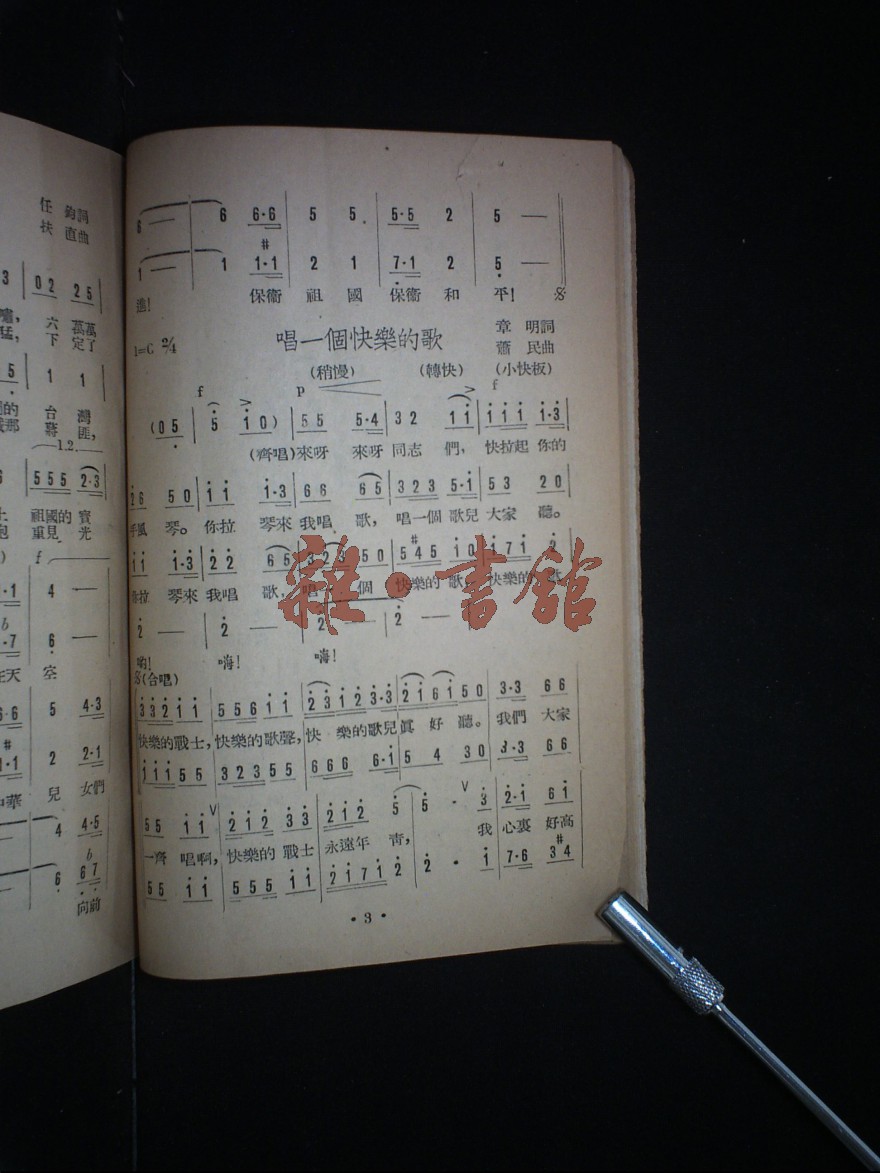 任鈞詞
扶直曲
3 | 0 2 2 5
六萬萬
下定了
5 | 1 1
台灣
蔣匪,
1.2.
5 5 5 2·3
祖國的寶
重見光
f
·1 | 4 —
b
·7 | 6 —
在天空
6·6 | 5 4·3
#
1·1 | 2 2·1
中華兒女們
4 4·5
b
6 6 7
向前
6 — | 6 6·6 | 5 5 . | 5·5 2 | 5 —
#
1 — | 1 1·1 | 2 1 | 7·1 2 | 5 —
進! 保衛祖國保衛和平!
唱一個快樂的歌
1=G 2/4
章明詞
蕭民曲
(稍慢) (轉快) (小快板)
f p f
(0 5 | 5 1 0) | 5 5 5·4 | 3 2 1 1 | 1 1 1 1·3
(齊唱)來呀 來呀同志們, 快拉起你的
2 6 5 0 | 1 1 1·3 | 6 6 6 5 | 3 2 3 5·1 | 5 3 2 0
手風琴。你拉琴來我唱歌,唱一個歌兒大家聽。
#
1 1 1·3 | 2 2 6 5 | 3 2 3 5 0 | 5 4 5 1 0 | 1 7 1 2
你拉琴來我唱歌,唱一個快樂的歌。快樂的歌
2 — | 2 — | 2 — | 2 —
喲! 嗨! 嗨!
(合唱)
3 3 2 1 1 | 5 5 6 1 1 | 2 3 1 2 3·3 | 2 1 6 1 5 0 | 3·3 6 6
快樂的戰士,快樂的歌聲,快樂的歌兒真好聽。我們大家
1 1 1 5 5 | 3 2 3 5 5 | 6 6 6 6·1 | 5 4 3 0 | 3·3 6 6
5 5 1 1 V | 2 1 2 3 3 | 2 1 2 5 | 5 · V 3 | 2·1 6 1
一齊唱啊,快樂的戰士永遠年青, 我心裏好高
#
5 5 1 1 | 5 5 5 1 1 | 2 1 7 1 2 | 2 · 1 | 7·6 3 4
·3·
雜·書館